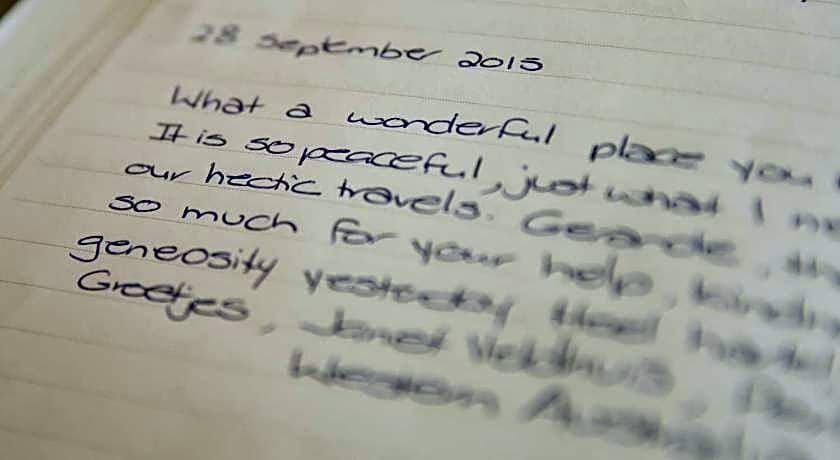 28 September 2015
What a wonderful place you
It is so peaceful, just what I
our hectic travels. Gerarde,
so much for your help,
geneosity yesterday
Groetjes, Janet
Western